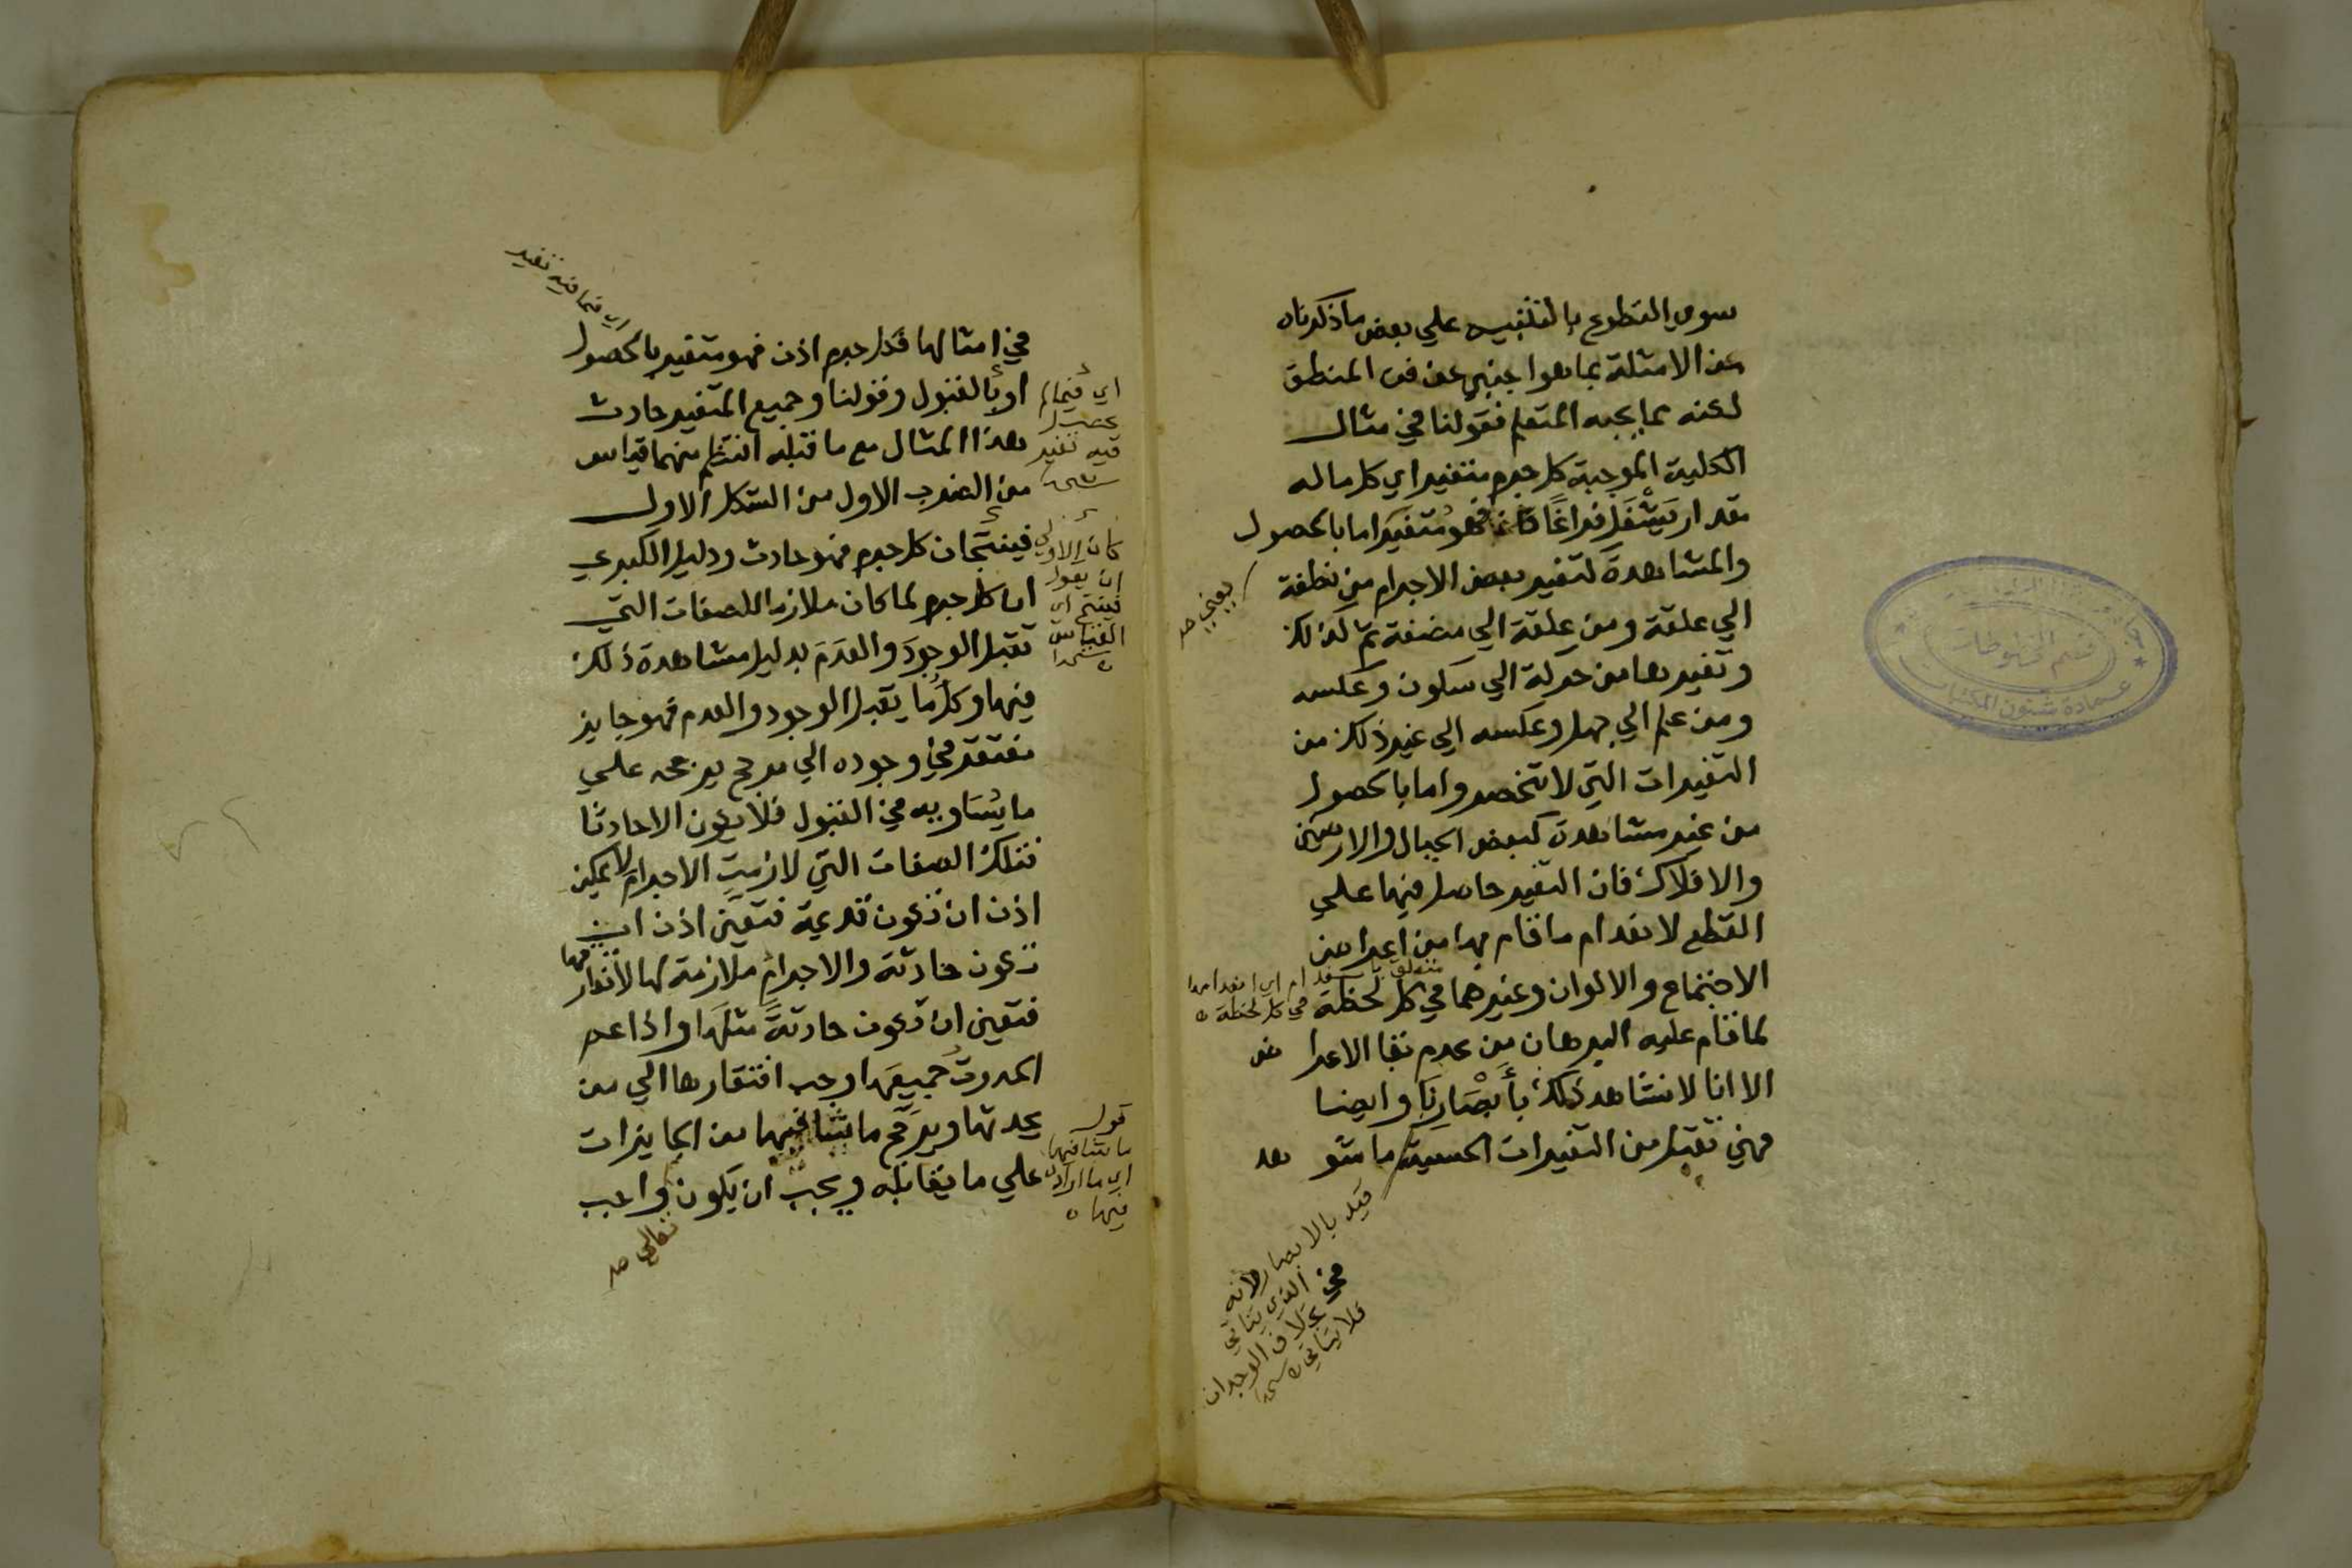 سوي التطوع بالتنبيه علي بعض ما ذكرناه
من الامثلة بما هوا جنبي عن فن المنطق
لكنه مما يجبه المتعلم فقولنا في مثال
الكلية الموجبة كل جرم متغير اي كل ما له
مقدار يَشْغَل فراغًا فهو مُتغيَر اما بالحصول
والمشاهدة كتغير بعض الاجرام من نطفة
يعني صح
الي علقة ومن علقة الي مضغة ثم كذلك
وتغيرها من حركة الي سكون وعكسه
ومن علم الي جهل وعكسه الي غير ذلك من
التغيرات التي لا تنحصر واما بالحصول
من غير مشاهدة كبعض الجبال والارضين
والافلاك فان التغير حاصل فيها علي
القطع لانعدام ما قام بها من اعراض
الاجتماع والالوان وغيرهما في كل لحظة
متعلق بانعدام اي انعدامها
في كل لحظة ه
لما قام عليه البرهان من عدم بقا الاعراض
الا انا لا نشاهد ذلك بأَبْصَارِنَا وايضا
فهي تقبل من التغيرات الحسية ما شوهد
قيد بالابصار لانه
الذي يتاتي
فيه بخلاف الوجدان
فلا يتاتي ه
قسم المخطوطات
عمادة شئون المكتبات
اي فما فيه تغير
في امثالها فكل جرم اذن فهو متغير بالحصول
او بالقبول وقولنا وجميع المتغير حادث
هذا المثال مع ما قبله انتظم منهما قياس
من الضرب الاول من الشكل الاول
فينتجان كل جرم فهو حادث ودليل الكبري
ان كل جرم لما كان ملازما للصفات التي
تقبل الوجودَ والعَدَمَ بدليل مشاهدة ذلك
فيها وكلُّ ما يقبل الوجود والعدم فهو جايز
مفتقر في وجوده الي مرجح يرجحه علي
ما يُسَاويه في القبول فلا يكون الا حادثا
فتلك الصفات التي لازمتِ الاجرامَ لا يمكن
اذن ان تكون قديمة فتعيّن اذن ان
تكون حادثة والاجرامُ ملازمة لها لا تفارقها
فتعين ان تكون حادثةً مثلَها واذا عم
الحدوثُ جميعَها وجب افتقارها الي من
يحدثها ويرجّح ما يشا فيها من الجايزات
علي ما يقابله ويجب ان يكون واجب
تعالي صح
اي فيما لم
يحصل
فيه تغير
كان الاولي
ان يقول
فينتج اي
القياس
قول
ما يشا فيها
اي ما اراد
فيها ه